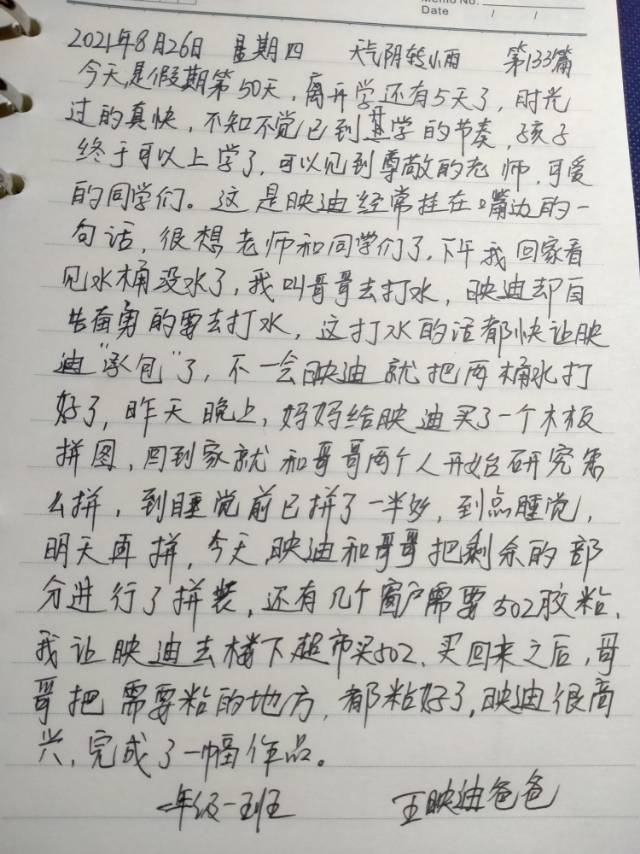 Memo No.
Date / /
2021年8月26日 星期四 天气阴转小雨 第133篇
今天是假期第50天，离开学还有5天了，时光
过的真快，不知不觉已到开学的节奏，孩子
终于可以上学了，可以见到尊敬的老师，可爱
的同学们。这是映迪经常挂在嘴边的一
句话，很想老师和同学们了，下午我回家看
见水桶没水了，我叫哥哥去打水，映迪却自
告奋勇的要去打水，这打水的活都快让映
迪“承包”了，不一会映迪就把两桶水打
好了，昨天晚上，妈妈给映迪买了一个木板
拼图，回到家就和哥哥两个人开始研究怎
么拼，到睡觉前已拼了一半多，到点睡觉，
明天再拼，今天，映迪和哥哥把剩余的部
分进行了拼装，还有几个窗户需要502胶粘，
我让映迪去楼下超市买502，买回来之后，哥
哥把需要粘的地方，都粘好了，映迪很高
兴，完成了一幅作品。
一年级一班 王映迪爸爸